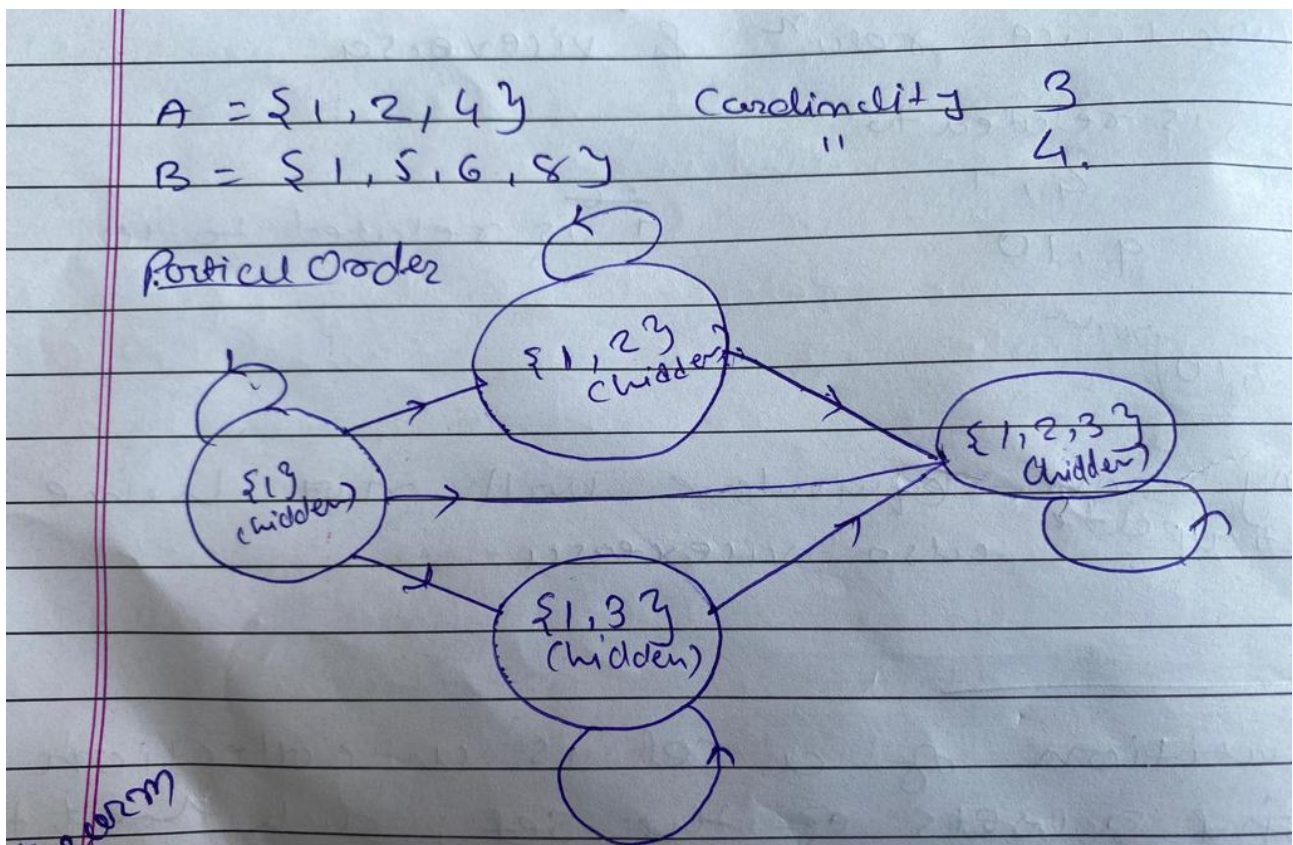 A = {1, 2, 4} Cardinality 3
B = {1, 5, 6, 8} " 4.
Partial Order
{1, 2}
(hidden)
{1, 2, 3}
(hidden)
{1}
(hidden)
{1, 3}
(hidden)